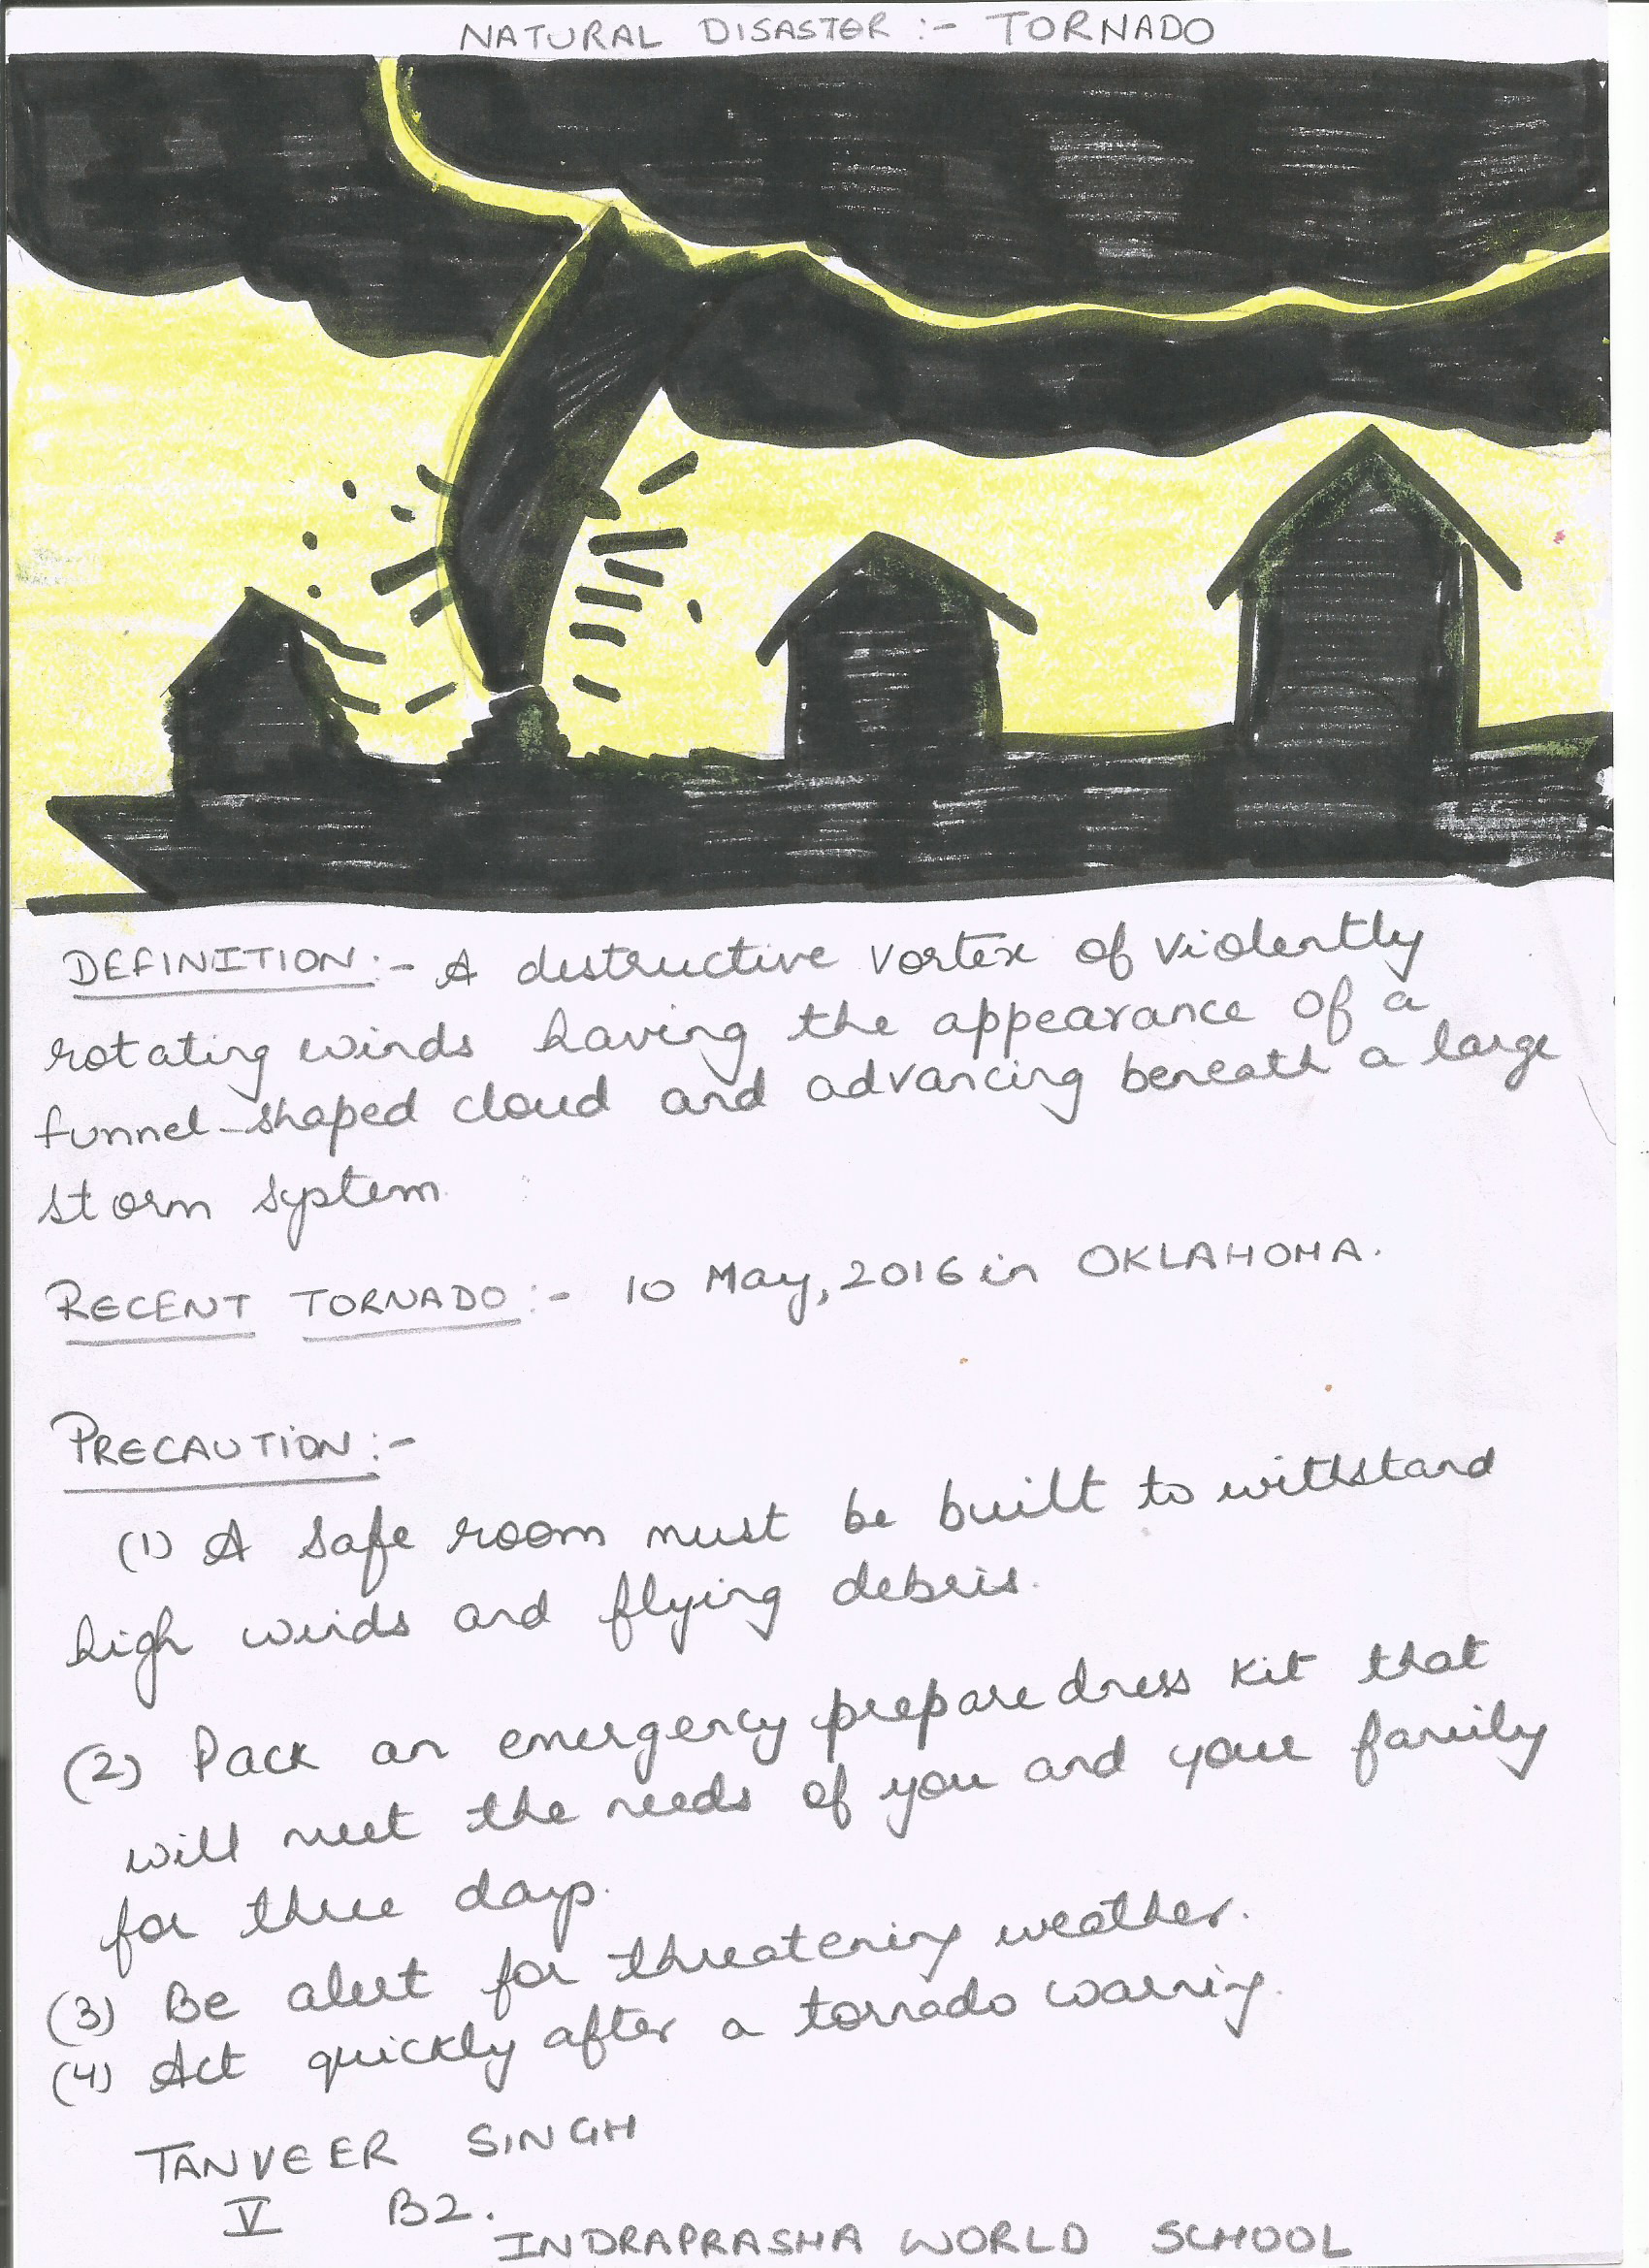 NATURAL DISASTER :- TORNADO
DEFINITION :- A destructive vortex of violently
rotating winds having the appearance of a
funnel-shaped cloud and advancing beneath a large
storm system.
RECENT TORNADO :- 10 May, 2016 in OKLAHOMA.
PRECAUTION :-
(1) A safe room must be built to withstand
high winds and flying debris.
(2) Pack an emergency preparedness kit that
will meet the needs of you and your family
for three days.
(3) Be alert for threatening weather.
(4) Act quickly after a tornado warning.
TANVEER SINGH
V B2.
INDRAPRASHA WORLD SCHOOL